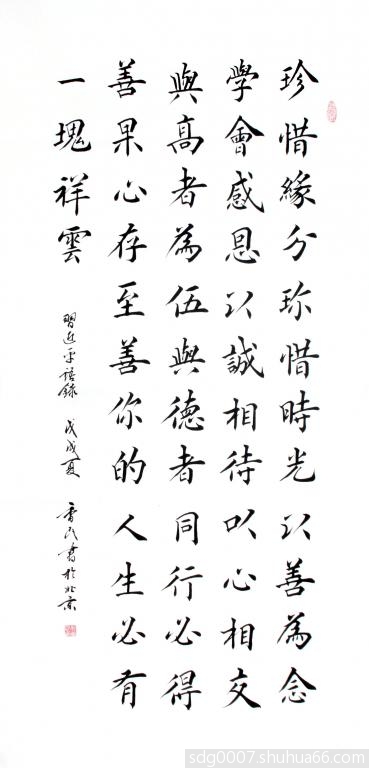 珍惜緣分珎惜時光以善為念
學會感恩以誠相待以心相交
與髙者為伍與德者同行必得
善果心存至善你的人生必有
一塊祥雲
習近平語錄 戊戌夏 民書於北京
sdg0007.shuhua66.com